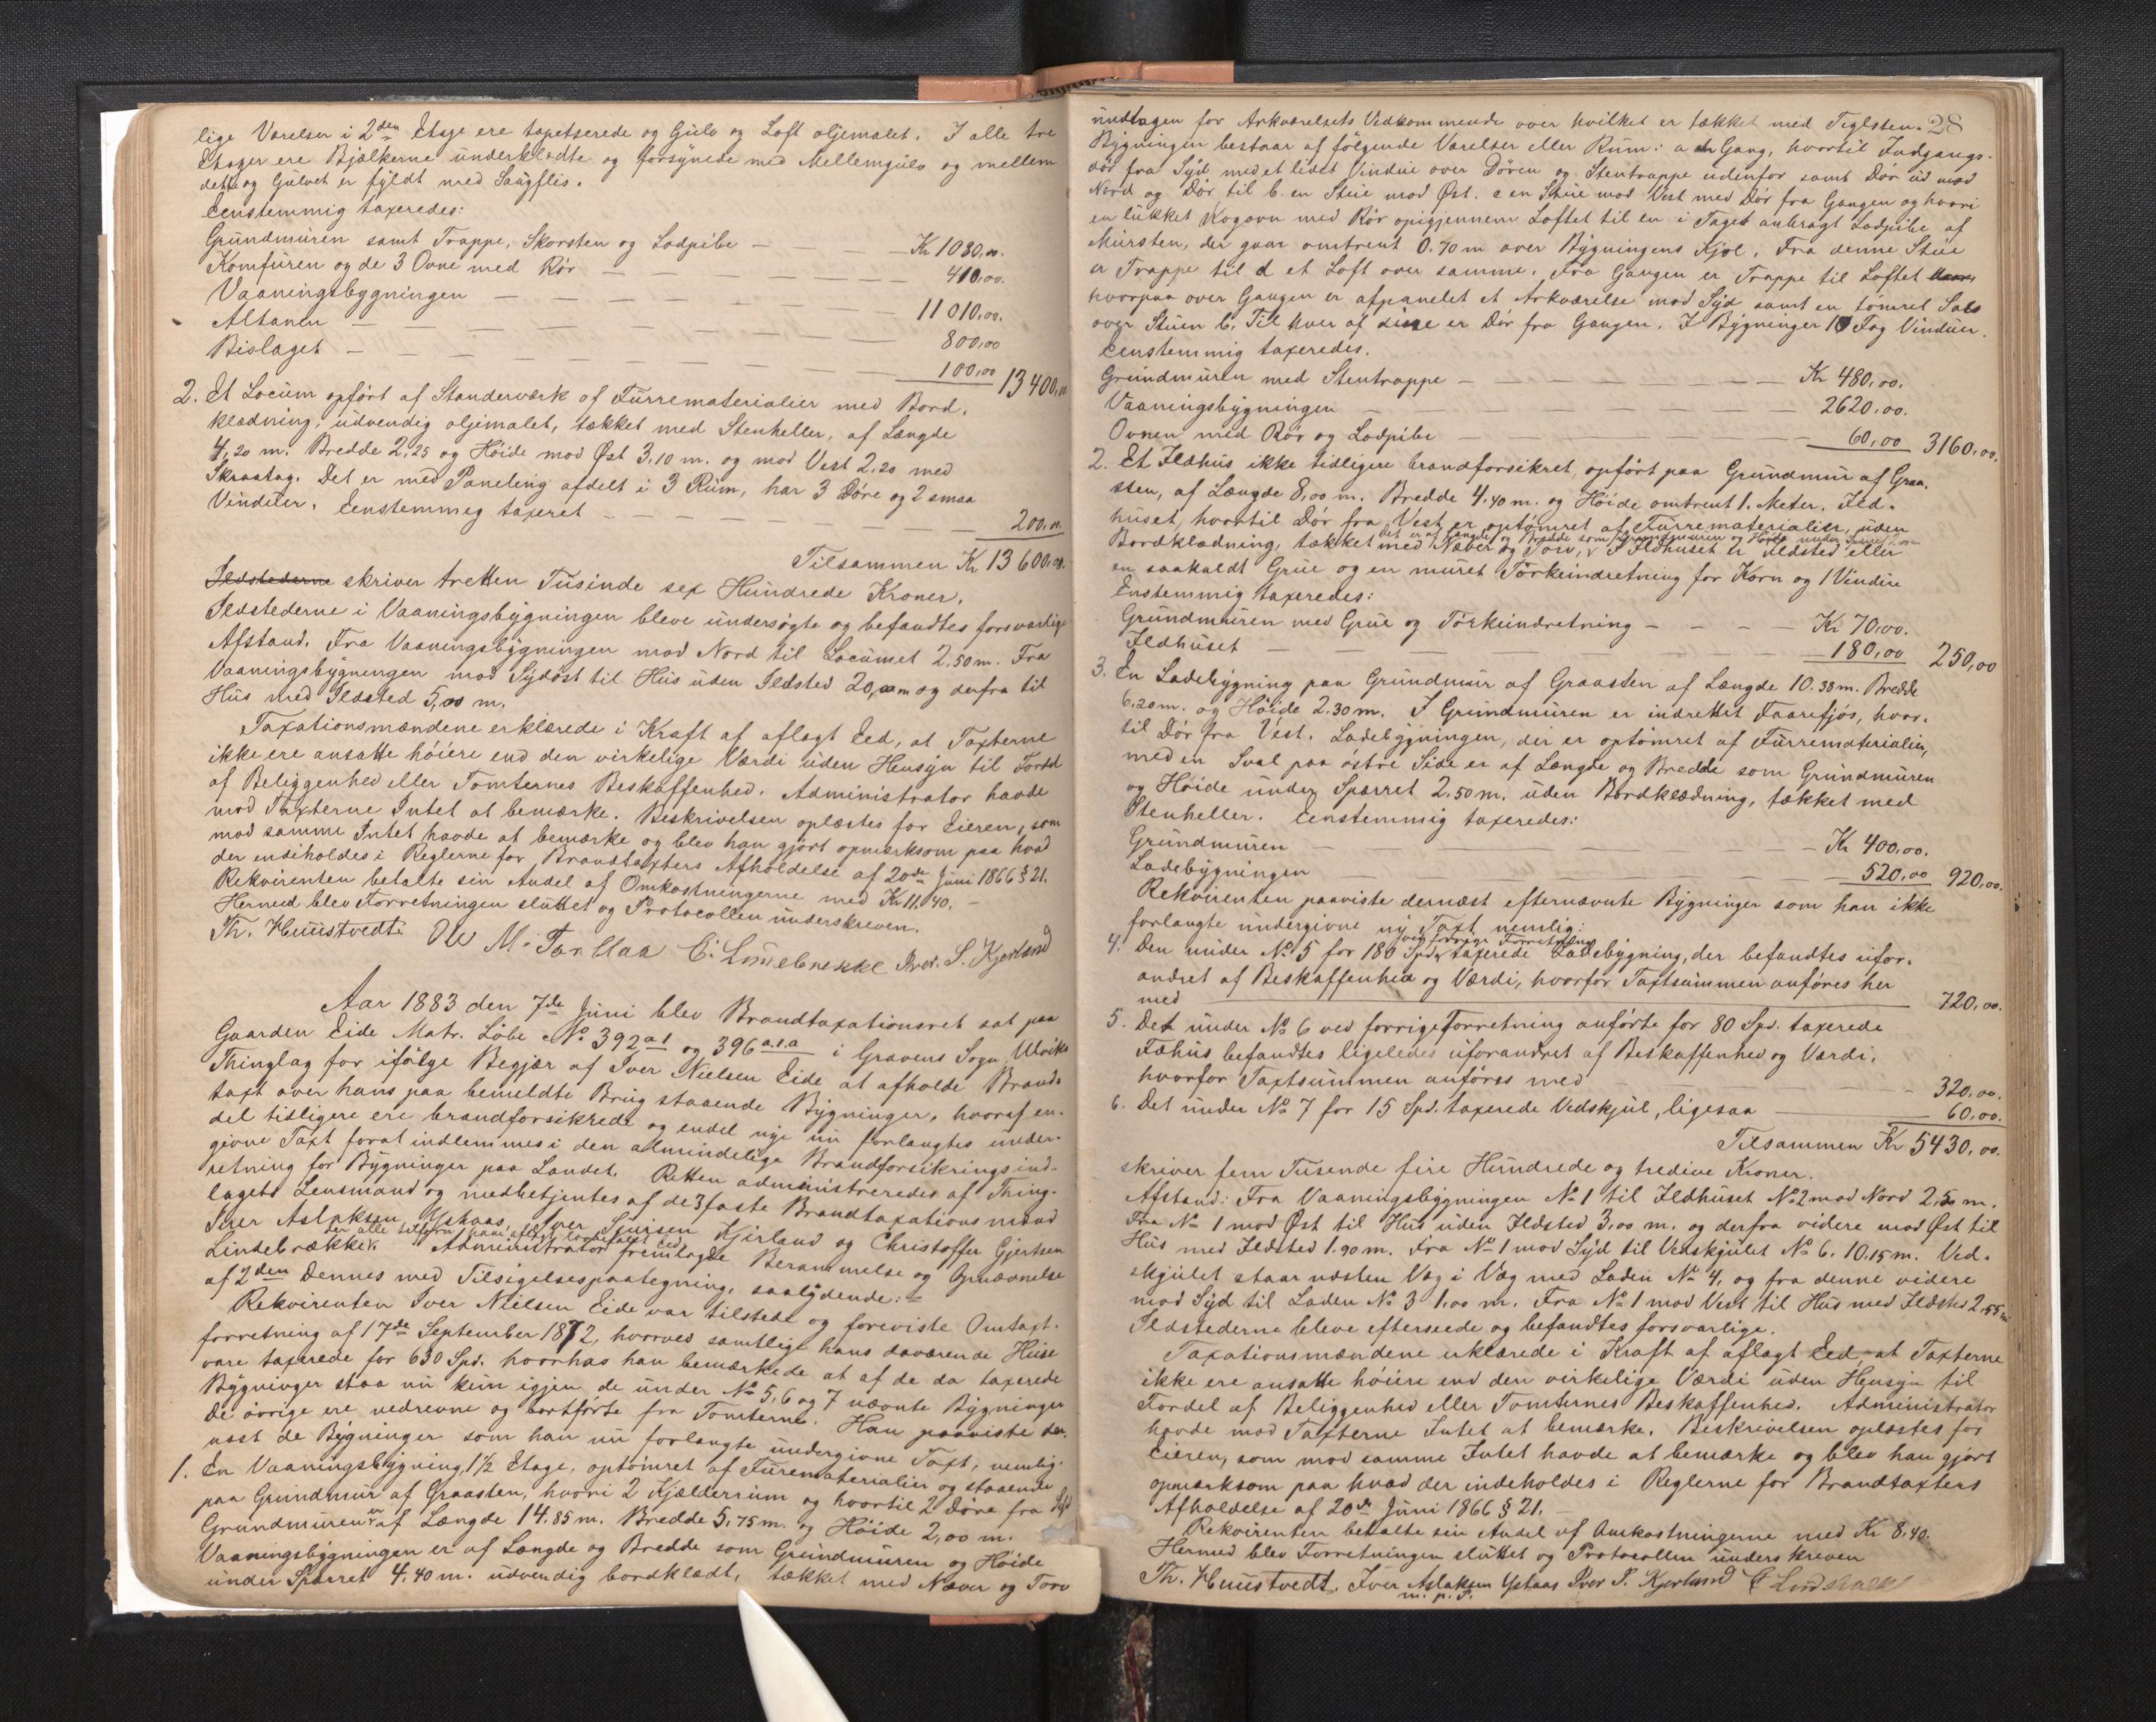 lige Værelser i 2den Etage ere tapetserede og Gulv og Loft oljemalet. I alle tre
Etager ere Bjælkerne underklædte og forsynede med Mellemgulv og mellem
dette og Gulvet er fyldt med Saugflis.
Eenstemmig taxeredes:
Grundmuren samt Trappe, Skorsten og Lodpibe — — — Kr 1080,00.
Komfuren og de 3 Ovne med Rør — — — — 410,00.
Vaaningsbygningen — — — — — 11 010,00.
Altanen — — — — — 800,00
Bislaget — — — — — 100,00 13400,00
2. Et Locum opført af Standerværk af Furrematerialier med Bord,
klædning, udvendig oljemalet, tækket med Stenheller, af Længde
4,20 m. Bredde 2,25 og Høide mod Øst 3,10 m. og mod Vest 2,20 med
Skraatag. Det er med Paneling afdelt i 3 Rum, har 3 Døre og 2 smaa
Vinduer. Eenstemmig taxeret — — — — 200,00.
Tilsammen Kr 13600,00.
Ildstederne skriver tretten Tusinde sex Hundrede Kroner.
Ildstederne i Vaaningsbygningen bleve undersøgte og befandtes forsvarlige
Afstand. Fra Vaaningsbygningen mod Nord til Locumet 2,50 m. Fra
Vaaningsbygningen mod Sydost til Hus uden Ildsted 20,00 m og derfra til
Hus med Ildsted 5,00 m.
Taxationsmændene erklærede i Kraft af aflagt Eed, at Taxterne
ikke ere ansatte høiere end den virkelige Værdi uden Hensyn til Fordel
af Beliggenhed eller Tomternes Beskaffenhed. Administrator havde
mod Taxterne Intet at bemærke. Beskrivelsen oplæstes for Eieren, som
mod samme Intet havde at bemærke og blev han gjort opmærksom paa hvad
der indeholdes i Reglerne for Brandtaxters Afholdelse af 20de Juni 1866 § 21.
Rekvirenten betalte sin Andel af Omkostningerne med Kr 11.40. —
Hermed blev Forretningen sluttet og Protocollen underskreven.
Th. Huustvedt. Ole M. C. Lindebrekke Iver. S. Kjerland
Aar 1883 den 7de Juni blev Brandtaxationsret sat paa
Gaarden Eide Matr. Løbe No 392 a1 og 396 a.1.a i Gravens Sogn, Ulviks
Thinglag for ifølge Begjær af Iver Nielsen Eide at afholde Brand-
taxt over hans paa bemeldte Brug staaende Bygninger, hvoraf en-
del tidligere ere brandforsikrede og endel nye nu forlangtes under-
givne Taxt forat indlemmes i den almindelige Brandforsikringsind-
retning for Bygninger paa Landet. Retten administreredes af Thing-
lagets Lensmand og medbetjentes af de 3 faste Brandtaxationsmænd
Iver Aslaksen Ystaas, Iver Sjursen Kjerland og Christoffer Gjertsen
der alle tilforn have aflagt lovbefalt Eed
Lindebrække. Administrator fremlagde Berammelse og Opnævnelse
af 2den Dennes med Tilsigelsespaategning, saalydende: =
Rekvirenten Iver Nielsen Eide var tilstede og foreviste Omtaxt-
forretning af 17de September 1872, hvorved samtlige hans daværende Huse
vare taxerede for 630 Spd. hvorhos han bemærkede at af de da taxerede
Bygninger staa nu kun igjen de under No 5, 6 og 7 nævnte Bygninger
De øvrige ere nedrevne og bortførte fra Tomterne. Han paaviste der-
næst de Bygninger som han nu forlangte undergivne Taxt, nemlig:
1. En Vaaningsbygning, 1½ Etage, optømret af Furematerialier og staaende
paa Grundmur af Graasten, hvori 2 Kjælderrum og hvortil 2 Døre fra Syd
Grundmuren er af Længde 14.85 m. Bredde 5,75 m. og Høide 2,00 m.
Vaaningsbygningen er af Længde og Bredde som Grundmuren og Høide
under Sparret 4.40 m. udvendig bordklædt, tækket med Næver og Torv
28
undtagen for Arkværelsets Vedkommende over hvilket er tækket med Teglsten.
Bygningen bestaar af følgende Værelser eller Rum: a en Gang, hvortil Indgangs-
dør fra Syd med et lidet Vindue over Døren og Stentrappe udenfor samt Dør ud mod
Nord og Dør til b. en Stue mod Øst. c en Stue mod Vest med Dør fra Gangen og hvori
en lukket Kogovn med Rør opigjennem Loftet til en i Taget anbragt Lodpibe af
Mursten, der gaar omtrent 0.70 m over Bygningens Kjøl. Fra denne Stue
er Trappe til d et Loft over samme. Fra Gangen er Trappe til Loftet
hvorpaa over Gangen er afpanelet et Arkværelse mod Syd samt en tømret Sals
over Stuen b. Til hver af disse er Dør fra Gangen. I Bygninger 10 Fag Vinduer.
Eenstemmig taxeredes.
Grundmuren med Stentrappe — — — — Kr 480,00.
Vaaningsbygningen — — — — 2620,00.
Ovnen med Rør og Lodpibe — — — — 60,00 3160,00.
2. Et Ildhus ikke tidligere brandforsikret, opført paa Grundmur af Graa-
sten, af Længde 8,00 m. Bredde 4.40 m. og Høide omtrent 1. Meter. Ild-
huset, hvortil Dør fra Vest, er optømret af Furrematerialier, uden
det er af Længde og Bredde som Grundmuren og Høide under Sparret
Bordklædning, tækket med Næver og Torv, I Ildhuset er Ildsted eller
en saakaldt Grue og en muret Tørkeindretning for Korn og 1 Vindue
Eenstemmig taxeredes:
Grundmuren med Grue og Tørkeindretning — — — Kr 70,00.
Ildhuset — — — — 180,00 250,00
3. En Ladebygning paa Grundmur af Graasten af Længde 10.38 m. Bredde
6.20 m. og Høide 2.30 m. I Grundmuren er indrettet Faarefjøs, hvor-
til Dør fra Vest. Ladebygningen, der er optømret af Furrematerialier,
med en Sval paa østre Side er af Længde og Bredde som Grundmuren
og Høide under Sparret 2.50 m. uden Bordklædning, tækket med
Stenheller. Eenstemmig taxeredes:
Grundmuren — — — — Kr 400,00.
Ladebygningen — — — — 520,00 920,00.
Rekvirenten paaviste dernæst efternævnte Bygninger som han ikke
forlangte undergivne ny Taxt nemlig:
ved forrige Forretning
4. Den under No 5 for 180 Spd. taxerede Ladebygning, der befandtes ufor-
andret af Beskaffenhed og Værdi, hvorfor Taxtsummen anføres her
med — 720,00.
5. Det under No 6 ved forrige Forretning anførte for 80 Spd. taxerede
Fæhus befandtes ligeledes uforandret af Beskaffenhed og Værdi,
hvorfor Taxtsummen anføres med — — — 320,00.
6. Det under No 7 for 15 Spd. taxerede Vedskjul, ligesaa — 60,00.
Tilsammen Kr 5430,00.
skriver fem Tusende fire Hundrede og tredive Kroner.
Afstand: Fra Vaaningsbygningen No 1 til Ildhuset No 2 mod Nord 2,50 m.
Fra No 1 mod Øst til Hus uden Ildsted 3,00 m. og derfra videre mod Øst til
Hus med Ildsted 1.90 m. Fra No 1 mod Syd til Vedskjulet No 6. 10.15 m. Ved-
skjulet staar næsten Væg i Væg med Laden No 4, og fra denne videre
mod Syd til Laden No 3 1,00 m. Fra No 1 mod Vest til Hus med Ildsted 2,55 m
Ildstederne bleve efterseede og befandtes forsvarlige.
Taxationsmændene erklærede i Kraft af aflagt Eed, at Taxterne
ikke ere ansatte høiere end den virkelige Værdi uden Hensyn til
Fordel af Beliggenhed eller Tomternes Beskaffenhed. Administrator
havde mod Taxterne Intet at bemærke. Beskrivelsen oplæstes for
Eieren, som mod samme Intet havde at bemærke og blev han gjort
opmærksom paa hvad der indeholdes i Reglerne for Brandtaxters
Afholdelse af 20de Juni 1866 § 21. —
Rekvirenten betalte sin Andel af Omkostningerne med Kr 8.40.
Hermed blev Forretningen sluttet og Protocollen underskreven
Th. Huustvedt. Iver Aslaksen Ystaas Iver S. Kjerland C Lindebrekke
m. p. P.